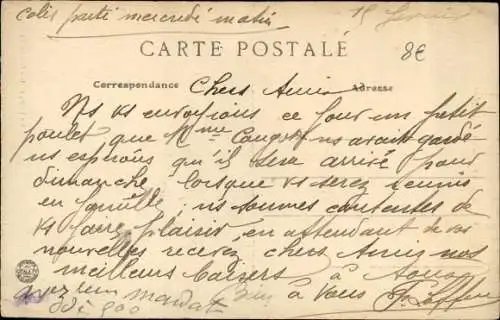 colis parti mercredi matin
15 fevrier
8€
CARTE POSTALE
Correspondance
Adresse
Chers Amis
Ns vs envoyions ce jour un petit
poulet que Mme ns avait gardé
ns espérons qu'il sera arrivé pour
dimanche lorsque vs serez réunis
en famille ns sommes contentes de
vs faire plaisir, en attendant de vos
nouvelles recevez chers Amis nos
meilleurs baisers à
mandat Bien à vous